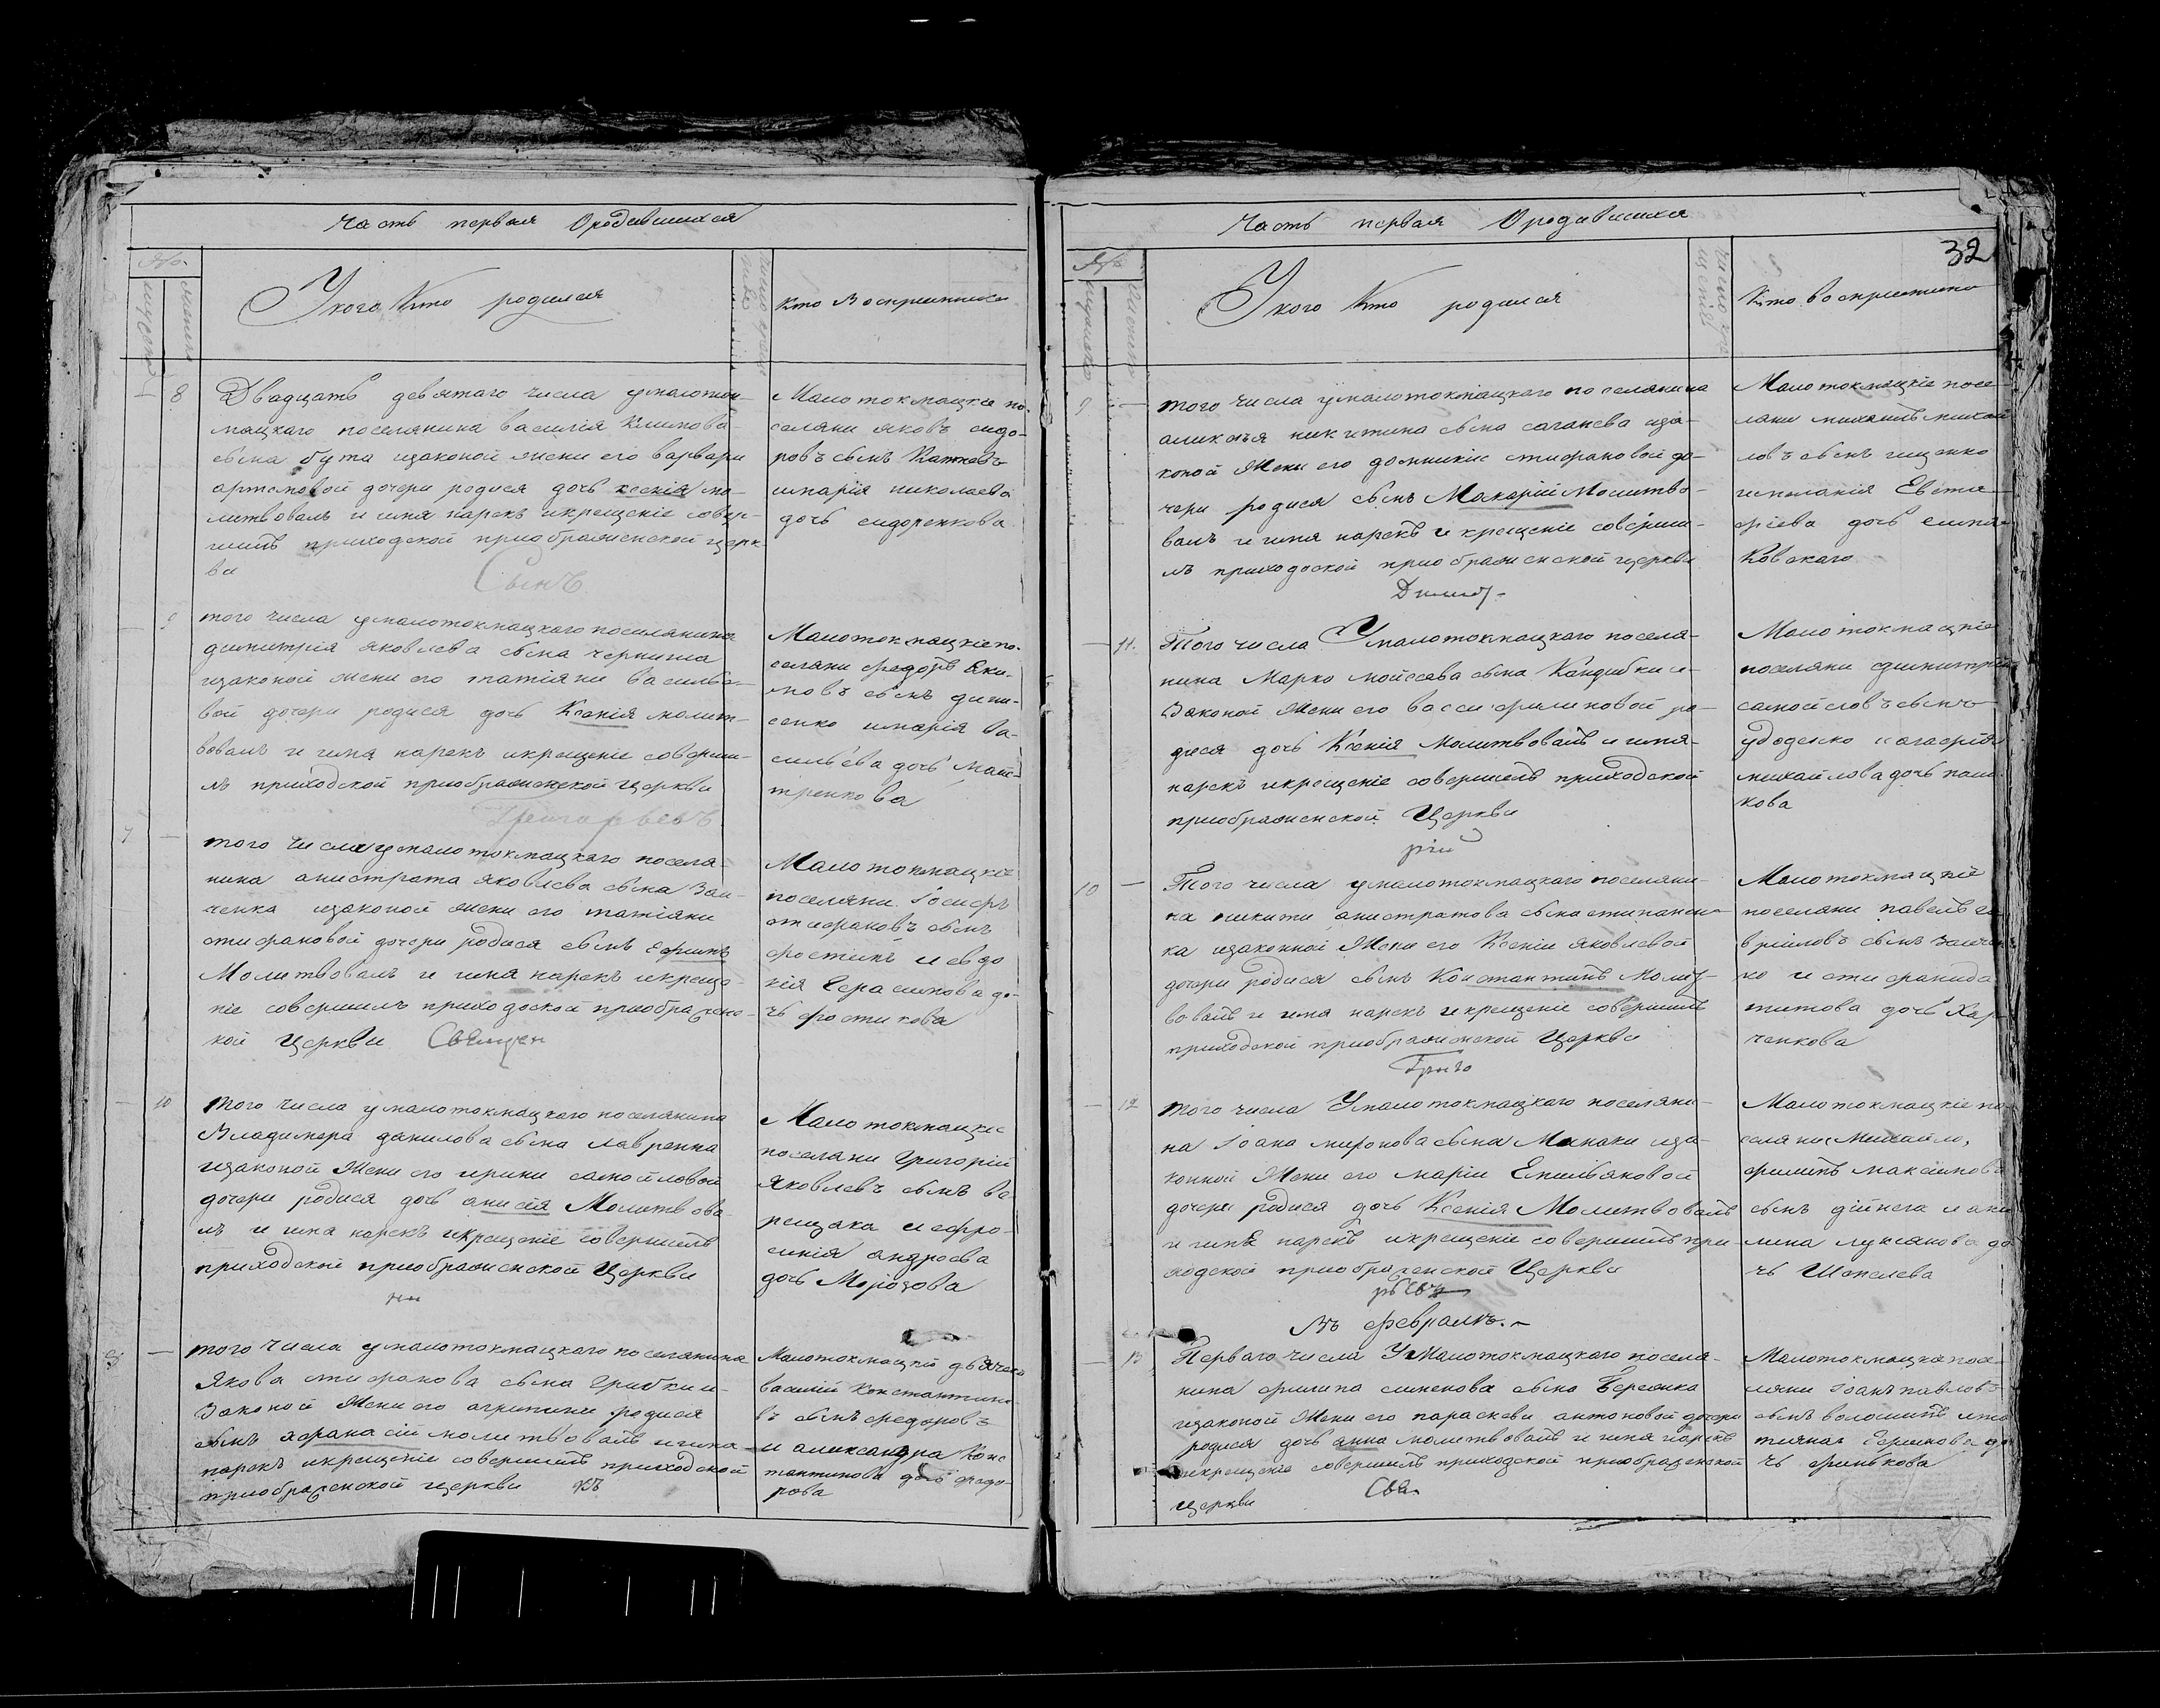 Часть первая Ородившихся
№
У кого Кто родился
Кто Воспріемники
8
Двадцать девятаго числа умалоток-
мацкаго поселянина василія Климова
сына бута изаконой жени его варвари
артемовой дочери родися дочь ксенія мо-
литвовалъ и имя нарекъ икрещеніе совер-
шилъ приходской приображенской церк-
ви
Малотокмацкіе по-
селяни яковъ сидо-
ровъ сынъ
имарія николаева
дочь сидоренкова
9
того числа умалотокмацкаго поселянина
димитрія яковлева сына
изаконой жени его татіяни василье-
вой дочери родися дочь Ксенія молит-
вовалъ и имя нарекъ икрещеніе соверши-
лъ приходской приображенской Церкви
Григорьевъ
Малотокмацкіе по-
селяни федоръ Яки-
мовъ сынъ дени-
сенко имарія ва-
сильева дочь
7
того числа умалотокмацкаго поселя-
нина анистрата яковлева сына Заи-
ченка изаконой жени его татіяни
стифановой дочери родися сынъ ефимъ
Молитвовалъ и имя нарекъ икреще-
ніе совершилъ приходской приображенс-
кой Церкви Священ
Малотокмацкіе
поселяни Іосифъ
стифановъ сынъ
и евдо
кія Герасимова до-
чь
10
того числа умалотокмацкаго поселянина
Владимера данилова сына лавренка
изаконой Жени его ирини самойловой
дочери родися дочь анисія Молитвова-
лъ и имя нарекъ икрещеніе совершилъ
приходской приображенской Церкви
Малотокмацкіе
поселяни Григорій
Яковлевъ сынъ ве
рещака и ефро-
синія андреева
дочь Морозова
8
того числа умалотокмацкаго поселянина
Якова стифанова сына Грибки и-
Законой Жени его агрипини родися
сынъ афанасій молитвовалъ и имя
нарекъ икрещеніе совершилъ приходской
приображенской церкви
Малотокмацкій
василій Константино
въ сынъ федоровъ
и александра Конс
тантинова дочь федо-
рова
Часть первая Ородившихся
32
№
У кого Кто родился
Кто воспріемники
9
того числа умалотокмацкаго поселянина
никитина сына саганева иза-
коной Жени его домникіи стифановой до-
чери родися сынъ Макарій Молитво-
валъ и имя нарекъ и крещеніе соверши-
лъ приходской приображенской церкви
Малотокмацкіе посе-
ляни михаилъ михай
ловъ сынъ гиценко
имеланія Евста-
фіева дочь
11.
Того числа Умалотокмацкаго поселя-
нина Марко мойсеева сына Кандибки и-
Законой Жени его васси филиповой ро-
дися дочь Ксенія Молитвовалъ и имя
нарекъ икрещеніе совершилъ приходской
приображенской Церкви
рій
Малотокмацкіе
поселяни димитрій
самойловъ сынъ
удоденко иагафія
михайлова дочь
кова
10
Того числа умалотокмацкаго поселяни-
на никити анистратова сына стипанен-
ка изаконной Жени его Ксеніи яковлевой
дочери родися сынъ Константинъ Молит-
вовалъ и имя нарекъ икрещеніе совершилъ
приходской приображенской Церкви
Малотокмацкіе
поселяни павелъ га
вріиловъ сынъ Заичен
ко и стифанида
титова дочь Хар
ченкова
12
того числа Умалотокмацкаго поселяни-
на Іоана миронова сына Минаки иза-
конной Жени его маріи Емильяновой
дочери родися дочь Ксенія Молитвовалъ
и имя нарекъ икрещеніе совершилъ при-
ходской приображенской Церкви
рьевъ
Малотокмацкіе по
селяни
филипъ максимовъ
сынъ дійнега и аки
лина лукіянова до
чь Шепелева
Въ февралѣ.
13
Перваго числа УМалотокмацкаго поселя-
нина филипа сименова сына Бережка
изаконой Жени его параскеви антоновой дочери
родися дочь анна молитвовалъ и имя нарекъ
икрещеніе совершилъ приходской приображенской
церкви Свя
Малотокмацкіе посе-
ляни Іоанъ павловъ
сынъ волошинъ ита
тияна Ефимова до
чь финькова